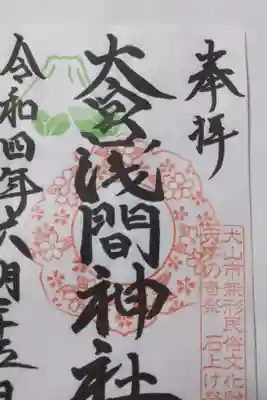 奉拝
大宮浅間神社
令和四年六月十五日
犬山市無形民俗文化財
石上げ祭